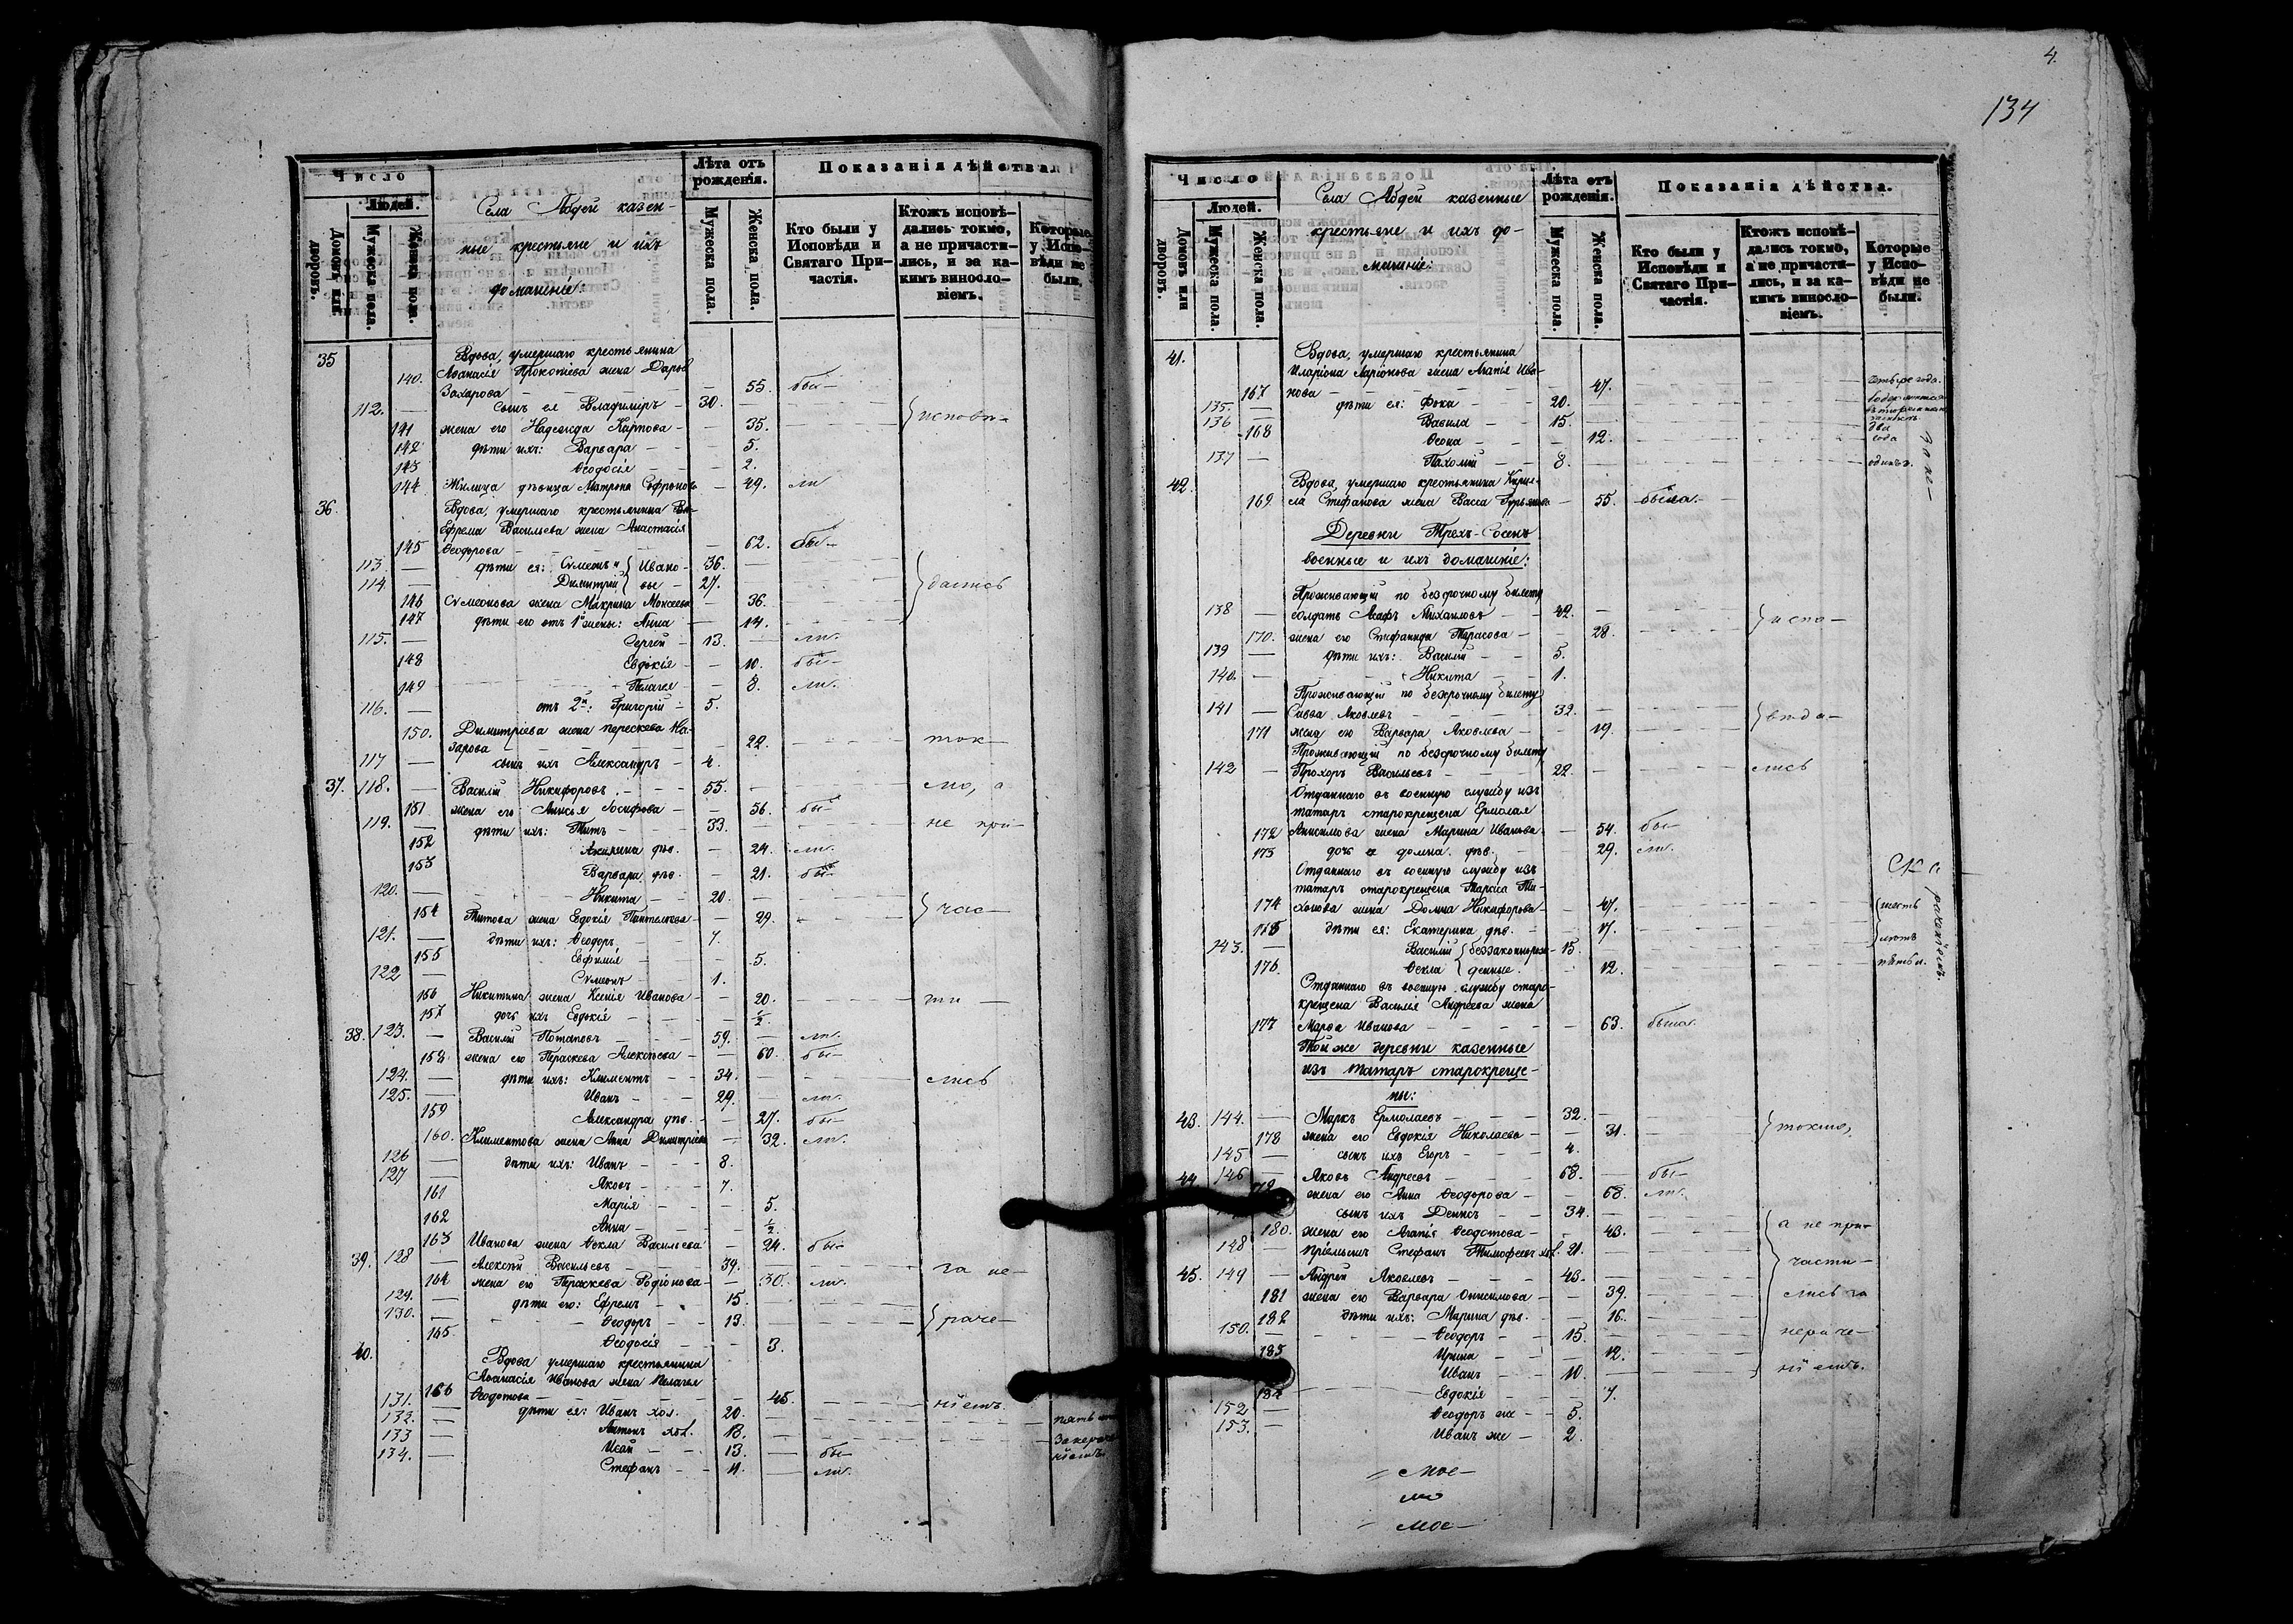 Число
Людей.
Домовъ или дворовъ.
Мужеска пола.
Женска пола.
Села Абдей казен
ные крестьяне и ихъ
домашніе:
Лѣта отъ рожденія.
Мужеска пола.
Женска пола.
Показанія дѣйства.
Кто были у Исповѣди и Святаго Причастія.
Ктожъ исповѣдались токмо, а не причастились, и за какимъ винословіемъ.
Которые у Исповѣди не были.
35 Вдова, умершаго крестьянина
140. Аѳанасія Прокопіева жена Дарья
Захарова — 55. бы-
112. — сынъ ея Владиміръ — 30. исповѣ-
141 жена его Надежда Карпова — 35.
142 дѣти ихъ: Варвара — 5.
143 Ѳеодосія — 2.
144 Жилица дѣвица Матрона Софронов — 49. ли
36. Вдова, умершаго крестьянина
Ефрема Васильева жена Анастасія
145 Ѳеодорова — 62. бы-
113 — дѣти ея: Сѵмеонъ Ивано- 36.
114 — Димитрій вы — 27. дались
146 Сѵмеонова жена Макрина Моисеева — 36.
147 дѣти его отъ 1й жены: Анна — 14.
115. — Сергій — 13. — ли.
148 Евдокія — 10. бы-
149 Пелагея — 8. ли.
116. — отъ 2й: Григорій — 5.
150. Димитріева жена Перескева На-
зарова — 22. ток-
117 — сынъ ихъ Александръ — 4.
37. 118. — Василій Никифоровъ — 55. — мо, а
151 жена его Анисія Іосифова — 56. бы-
119. — дѣти ихъ: Титъ — 33. не при-
152 Акилина дѣв. — 24. ли.
153 Варвара дѣв. — 21. бы-
120. — Никита — 20.
154 Титова жена Евдокія Пантелеева — 29. час-
121. — дѣти ихъ: Ѳеодоръ — 7.
155 Евфимія — 5.
122 — Сѵмеонъ 1.
156 Никитина жена Ксенія Иванова — 20. ти —
157 дочь ихъ Евдокія — ½.
38. 123. — Василій Потаповъ — 59. — ли.
158 жена его Параскева Алексѣева — 60. бы-
124. — дѣти ихъ: Климентъ — 34. — лись
125. — Иванъ — 29. — ли.
159 Александра дѣв. — 27. бы-
160. Климентова жена Анна Димитріева — 32. ли.
126 — дѣти ихъ: Иванъ — 8.
127 — Яковъ — 7.
161 Марія — 5.
162 Анна — ½.
163 Иванова жена Ѳекла Васильева — 24. бы-
39. 128 — Алексѣй Васильевъ — 39. — за не-
164 жена его Параскева Родіонова — 30. ли.
129. — дѣти его: Ефремъ — 15.
130. — Ѳеодоръ — 13. раче-
165. Ѳеодосія — 3.
40. Вдова умершаго крестьянина
Аѳанасія Иванова жена Пелагея
166 Ѳеодотова — 45. ніемъ
131. — дѣти ея: Иванъ хол. 20. пять
132. — Антонъ хол. 18. За нера
133 — Исай — 13. — бы- ніемъ
134. — Стефанъ — 11. — ли.
4.
134
Число
Людей.
Домовъ или дворовъ.
Мужеска пола.
Женска пола.
Села Абдей казенные
крестьяне и ихъ до-
машніе:
Лѣта отъ рожденія.
Мужеска пола.
Женска пола.
Показанія дѣйства.
Кто были у Исповѣди и Святаго Причастія.
Ктожъ исповѣдались токмо, а не причастились, и за какимъ винословіемъ.
Которые у Исповѣди не были.
41. Вдова, умершаго крестьянина
Иларіона Ларіонова жена Агапія Ива-
167 нова — 47. четыре года.
135. — дѣти ея: Ѳока — 20.
136 Вавила — 15.
168 Ѳеона — 12. два года
137 — Пахомій — 8. одинъ. За не-
42. Вдова, умершаго крестьянина Кирил-
169. ла Стефанова жена Васса Гурьянова — 55. была.
Деревни Трехъ-Сосенъ
военные и ихъ домашніе:
Проживающій по безсрочному билету
138 — солдатъ Асафъ Михаиловъ — 42.
170. жена его Стефанида Тарасова — 28. испо-
139 — дѣти ихъ: Василій — 5.
140. — Никита — 1.
Проживающій по безсрочному билету
141 — Савва Яковлевъ — 32. вѣда-
171 жена его Варвара Яковлева — 19.
Проживающій по безсрочному билету
142 — Прохоръ Васильевъ — 22. лись
Отданнаго въ военную службу изъ
татаръ старокрещена Ермолая
172 Анисимова жена Марина Иванова — 54. бы-
173 дочь ея Домна дѣв. — 29. ли.
Отданнаго въ военную службу изъ
татаръ старокрещена Тараса Ти-
174 хонова жена Домна Никифорова — 47. шесть
175 дѣти ея: Екатерина дѣв. — 17. лѣтъ
143. — Василій беззаконнорож- 15.
176. Ѳекла денные. 12. пять л. раченіемъ.
Отданнаго въ военную службу старо-
крещена Василія Андреева жена
177 Марѳа Иванова — 63. была.
Той же деревни казенные
изъ татаръ старокреще-
ны:
43. 144. — Маркъ Ермолаевъ — 32.
178 жена его Евдокія Николаева — 31. токмо,
145 — сынъ ихъ Егоръ — 4.
44 146 — Яковъ Андреевъ — 68. — бы-
жена его Анна Ѳеодорова — 68. ли.
сынъ ихъ Денисъ — 34.
180. жена его Агапія Ѳеодотова — 43. а не при-
148 — пріемышъ Стефанъ Тимофеевъ хол. 21.
45. 149 — Андрей Яковлевъ — 43. части-
181 жена его Варвара Онисимова — 39. лись за
182 дѣти ихъ: Марина дѣв. — 16.
150. — Ѳеодоръ — 15. нераче-
183 Ирина — 12.
Иванъ — 10. ніемъ.
184 Евдокія — 7.
152 — Ѳеодоръ же — 5.
153. Иванъ же — 2.